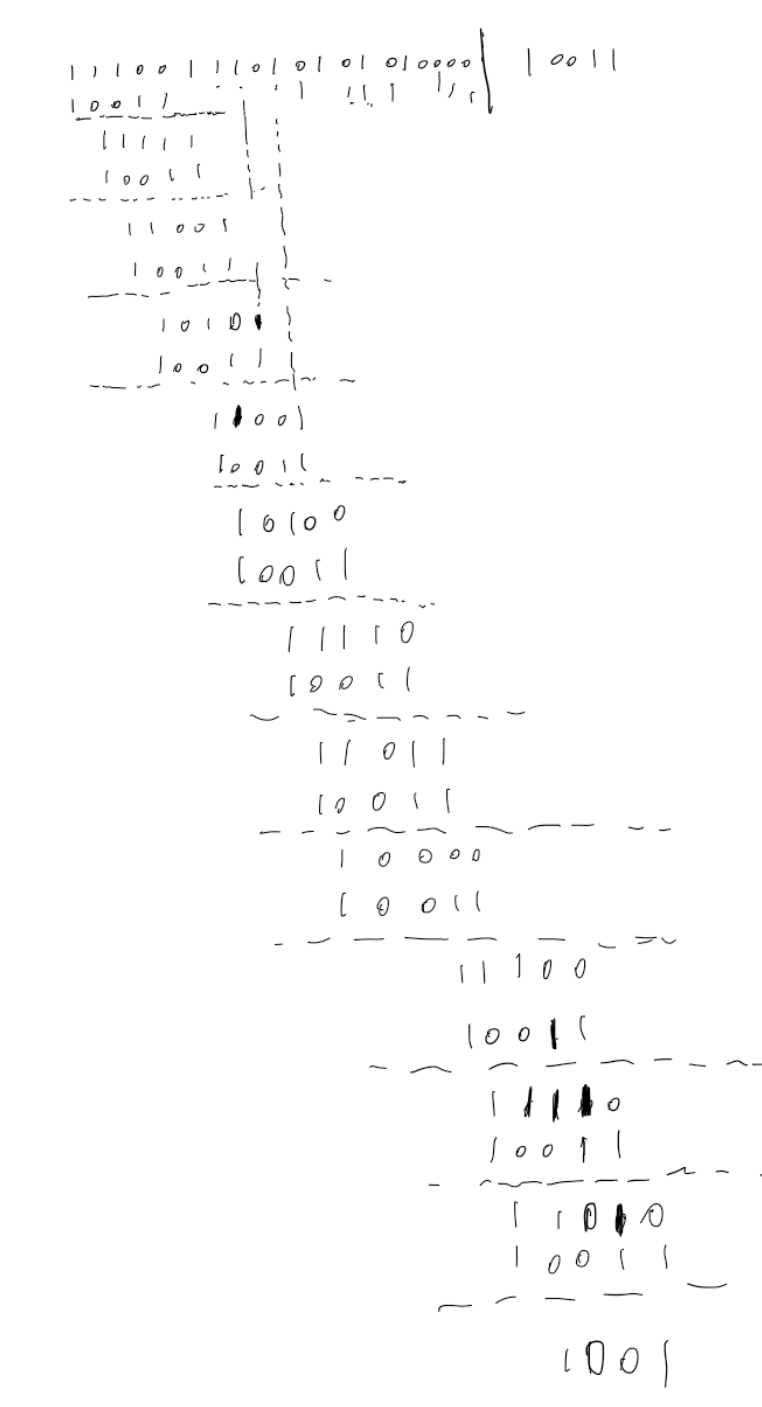 11100111010101010000 | 10011
10011
11111
10011
11001
10011
10101
10011
11001
10011
10100
10011
11110
10011
11011
10011
10000
10011
11100
10011
11110
10011
11010
10011
1001